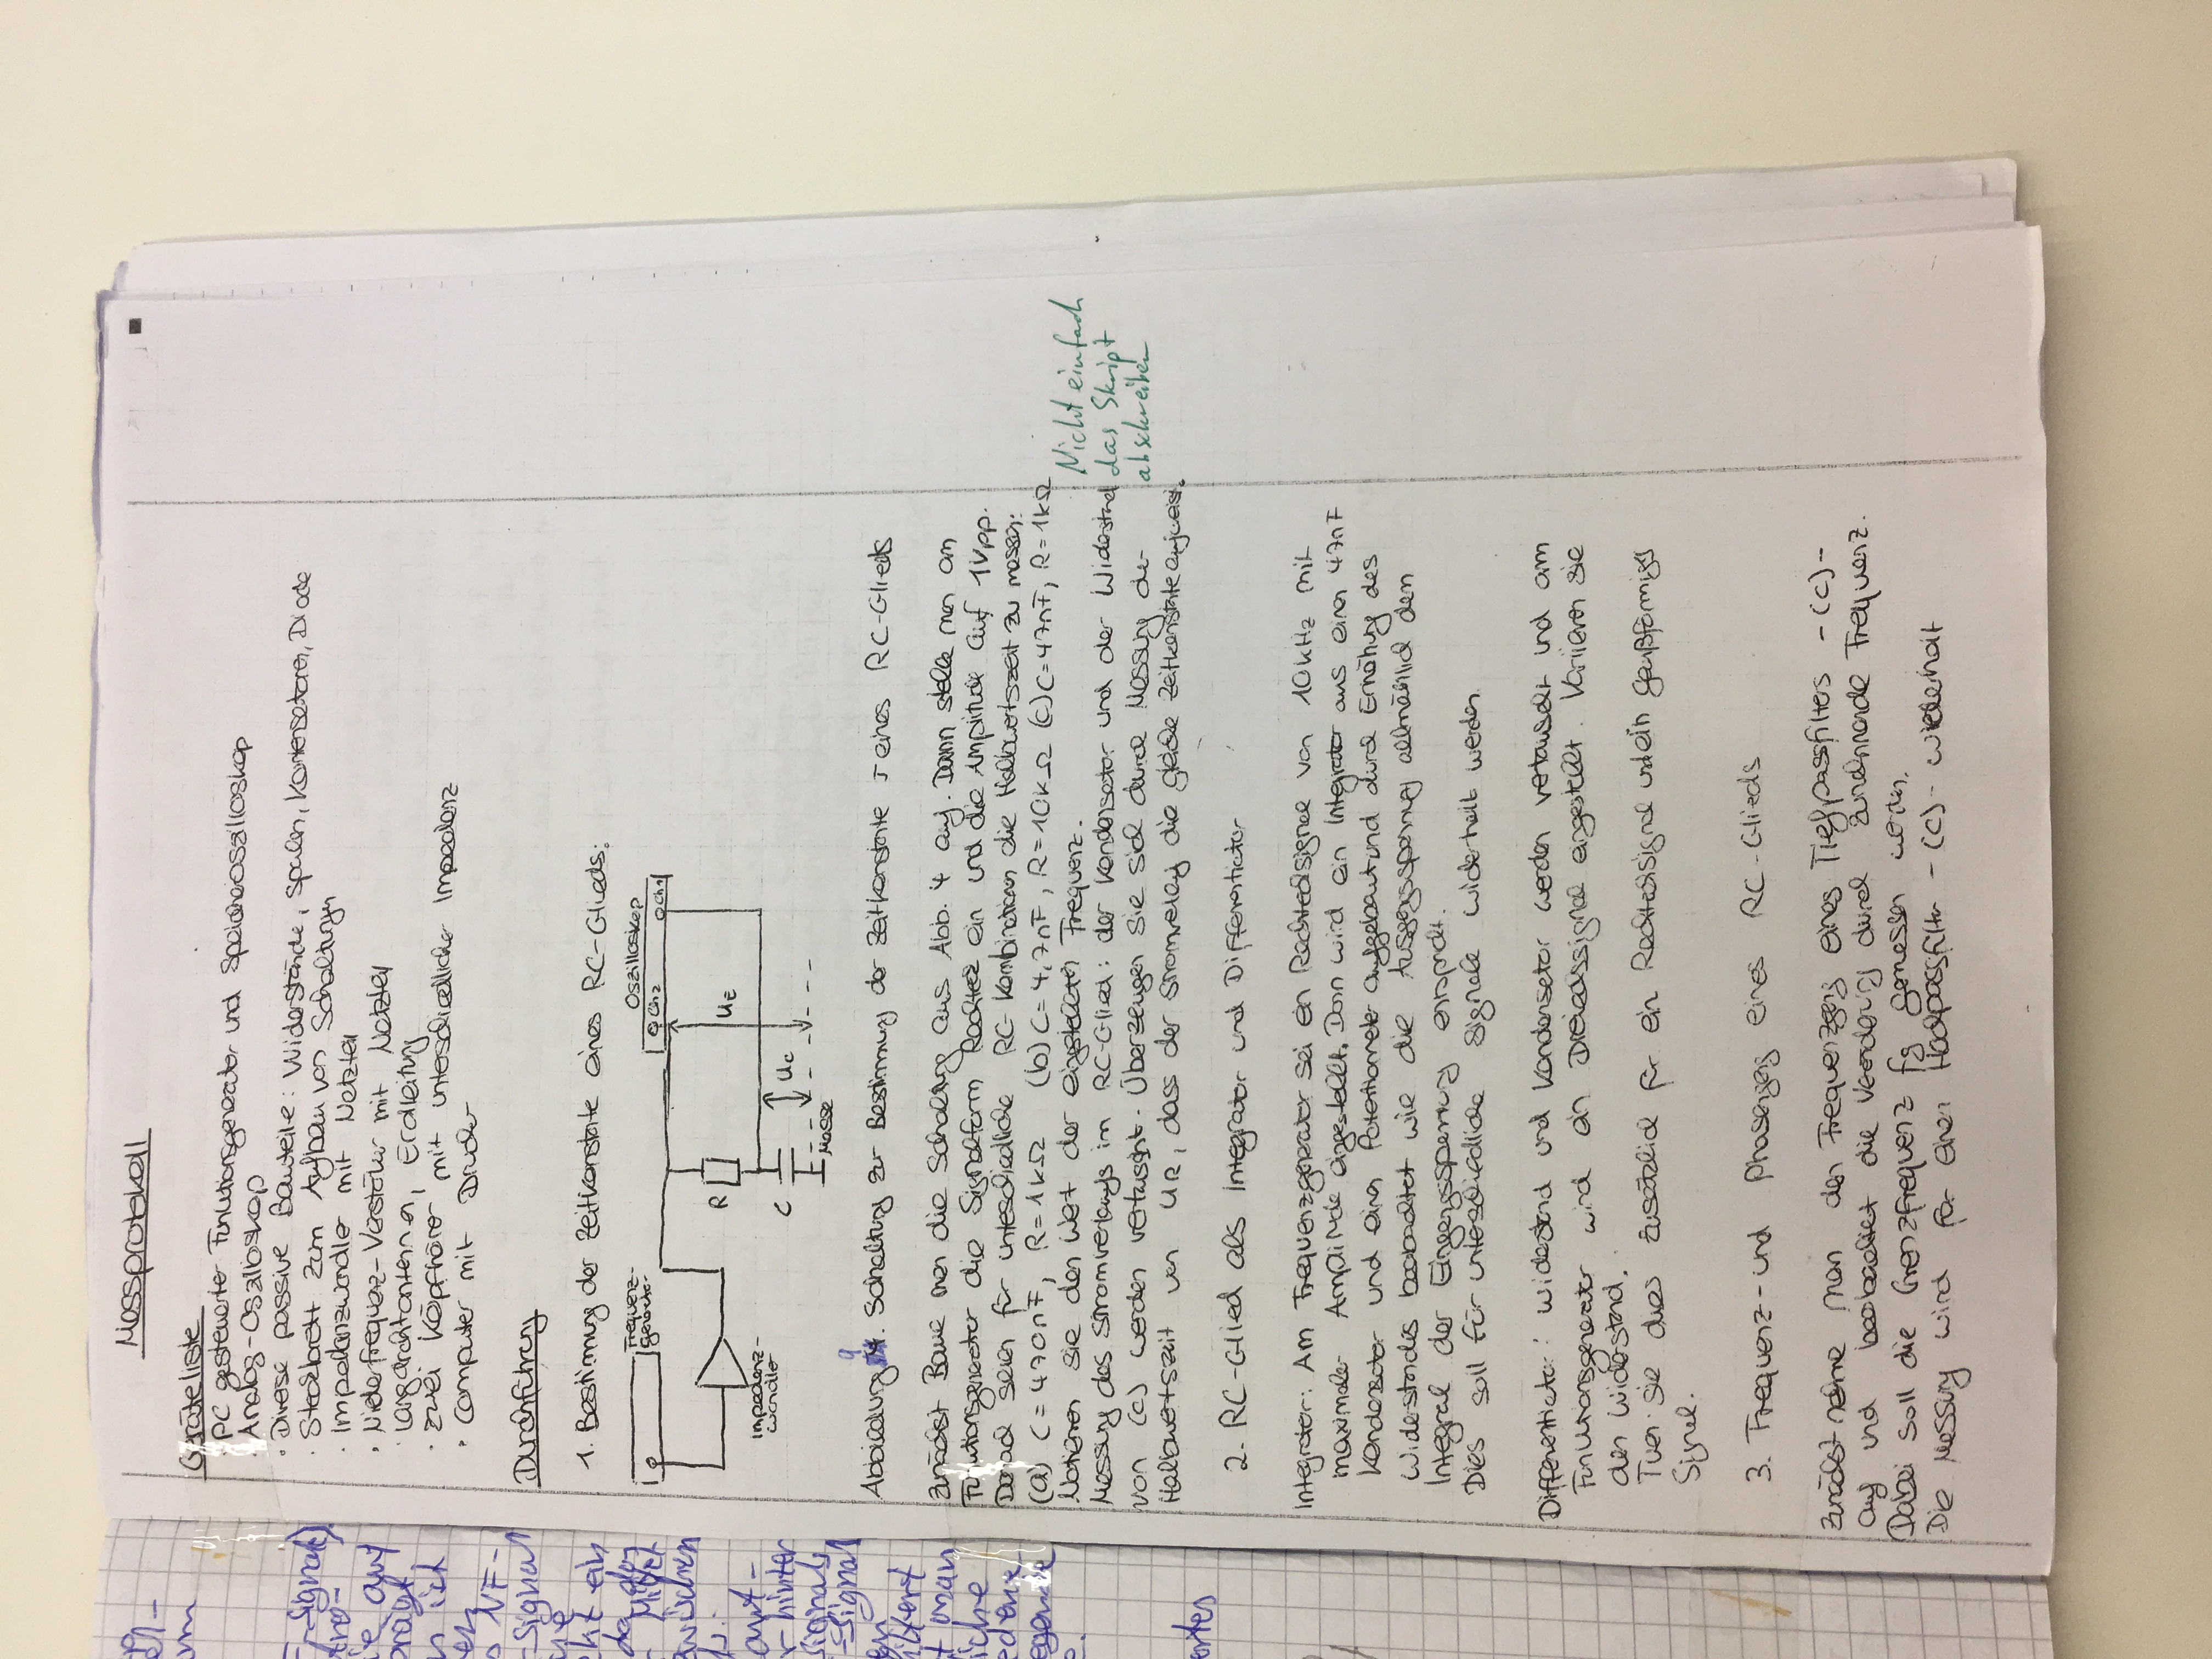 Messprotokoll
Geräteliste
· PC gesteuerter Funktionsgenerator und Speicheroszilloskop
· Analog-Oszilloskop
· Diverse passive Bauteile: Widerstände, Spulen, Kondensatoren, Diode
· Steckbrett zum Aufbau von Schaltungen
· Impedanzwandler mit Netzteil
· Niederfrequenz-Verstärker mit Netzteil
· Langdrahtantennen, Erdleitung
· zwei Kopfhörer mit unterschiedlicher Impedanz
· Computer mit Drucker
Durchführung
1. Bestimmung der Zeitkonstante eines RC-Glieds:
Frequenz-
generator
Oszilloskop
Ch2
Ch1
R
UE
Impedanz-
wandler
C
Uc
Masse
9
Abbildung . Schaltung zur Bestimmung der Zeitkonstante τ eines RC-Glieds
Zunächst Baue man die Schaltung aus Abb. 4 auf. Dann stelle man am
Funktionsgenerator die Signalform Rechteck ein und die Amplitude auf 1Vpp.
Danach seien für unterschiedliche RC-Kombinationen die Halbwertszeit zu messen:
(a) C = 470nF, R=1kΩ (b) C= 4,7nF, R=10kΩ (c) C=47nF, R=1kΩ
Notieren sie den Wert der eingestellten Frequenz.
Messung des Stromverlaufs im RC-Glied: der Kondensator und der Widerstand
von (c) werden vertauscht. Überzeugen Sie sich durch Messung der
Halbwertszeit von UR, dass der Stromverlauf die gleiche Zeitkonstante aufweist.
Nicht einfach
das Skript
abschreiben
2. RC-Glied als Integrator und Differentiator
Integrator: Am Frequenzgenerator sei ein Rechtecksignal von 10kHz mit
maximaler Amplitude eingestellt. Dann wird ein Integrator aus einem 47nF
Kondensator und einem Potentiometer aufgebaut und durch Erhöhung des
Widerstandes beobachtet wie die Ausgangsspannung allmählich dem
Integral der Eingangsspannung entspricht.
Dies soll für unterschiedliche Signale widerholt werden.
Differentiator: Widerstand und Kondensator werden vertauscht und am
Funktionsgenerator wird ein Dreieckssignal eingestellt. Variieren sie
den Widerstand.
Tuen sie dies zusätzlich für ein Rechtecksignal und ein gaußförmiges
Signal.
3. Frequenz- und Phasengang eines RC-Glieds
Zunächst nehme man den Frequenzgang eines Tiefpassfilters -(c)-
auf und beobachtet die Veränderung durch zunehmende Frequenz.
Dabei soll die Grenzfrequenz fg gemessen werden.
Die Messung wird für einen Hochpassfilter -(c)- wiederholt